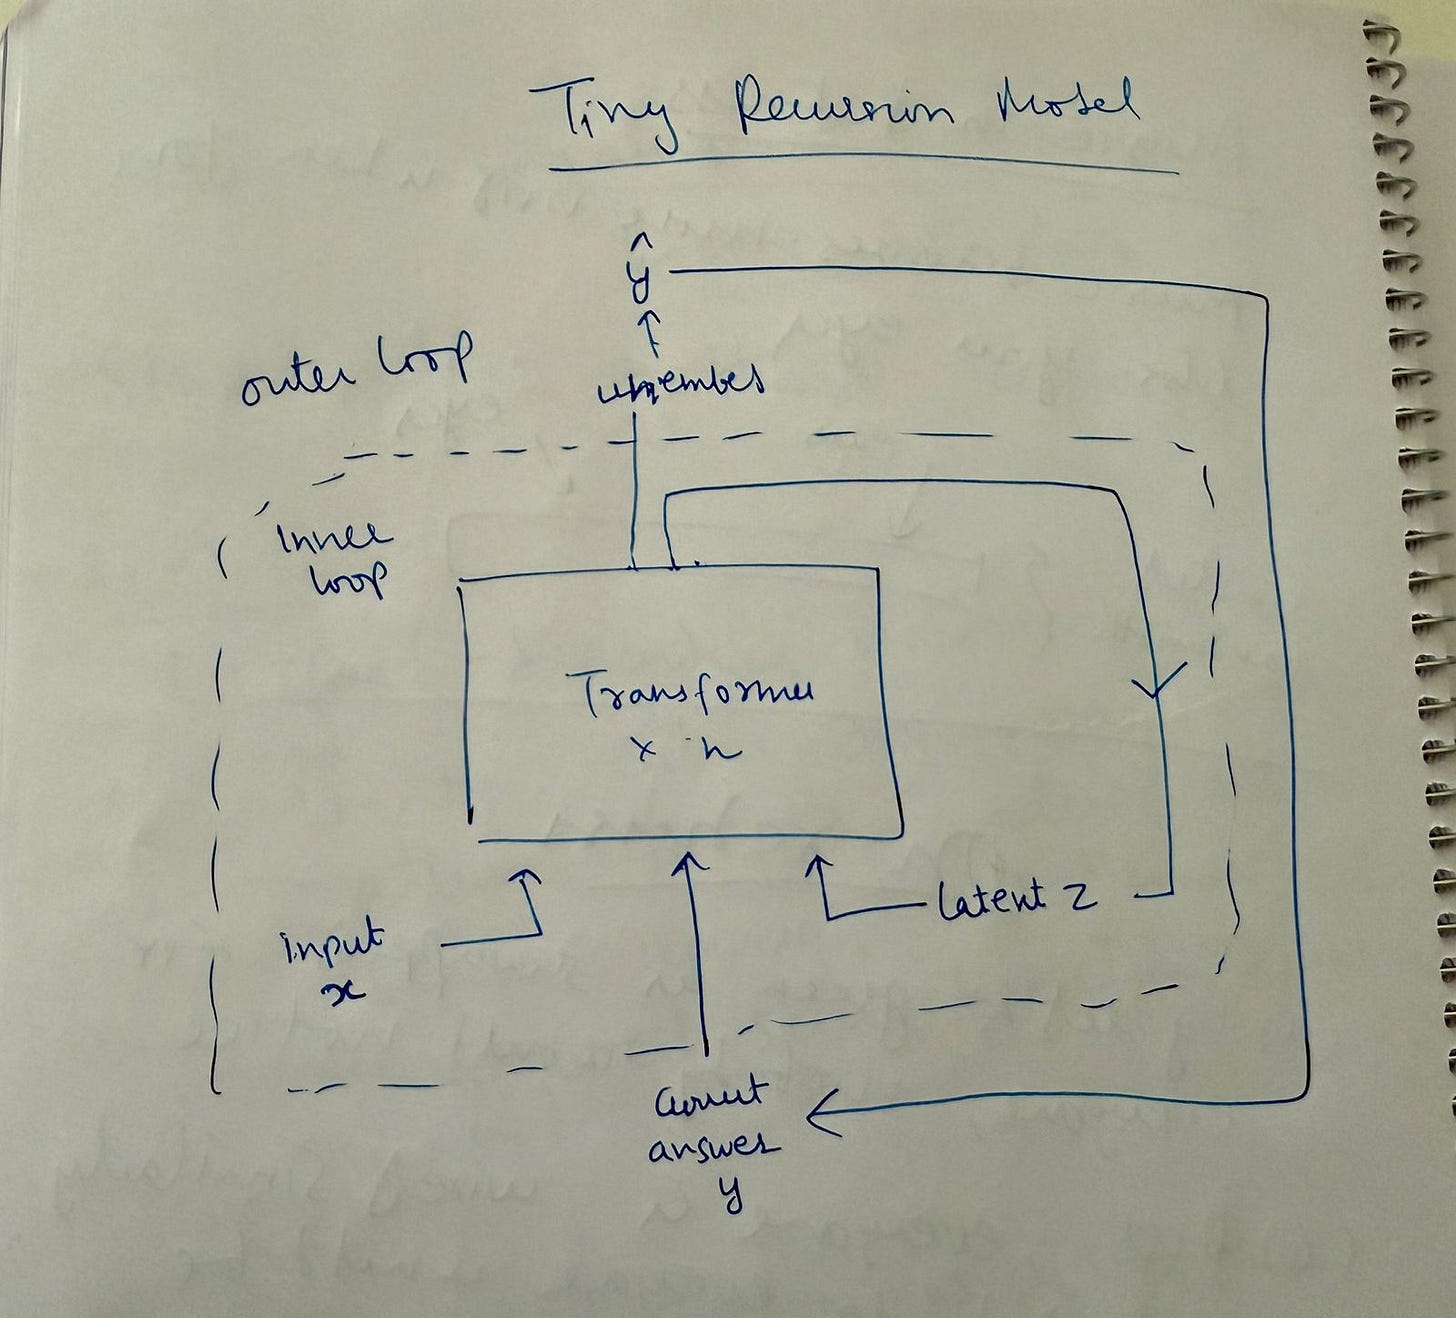 Tiny Recursion Model
ŷ
outer loop
unembed
inner
loop
Transformer
x n
latent z
input
x
Current
answer
y